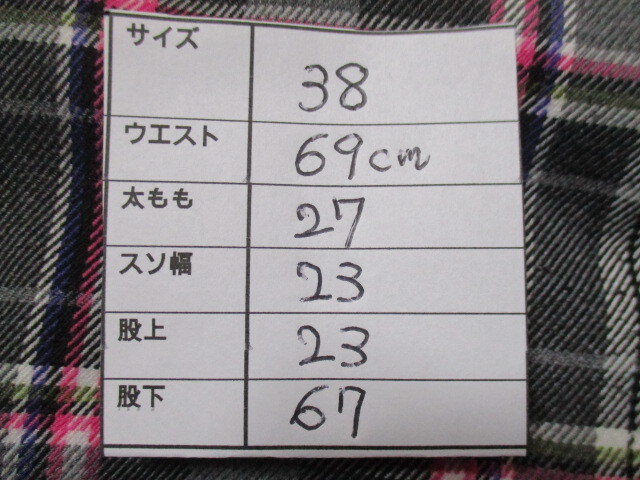 サイズ 38
ウエスト 69cm
太もも 27
スソ幅 23
股上 23
股下 67